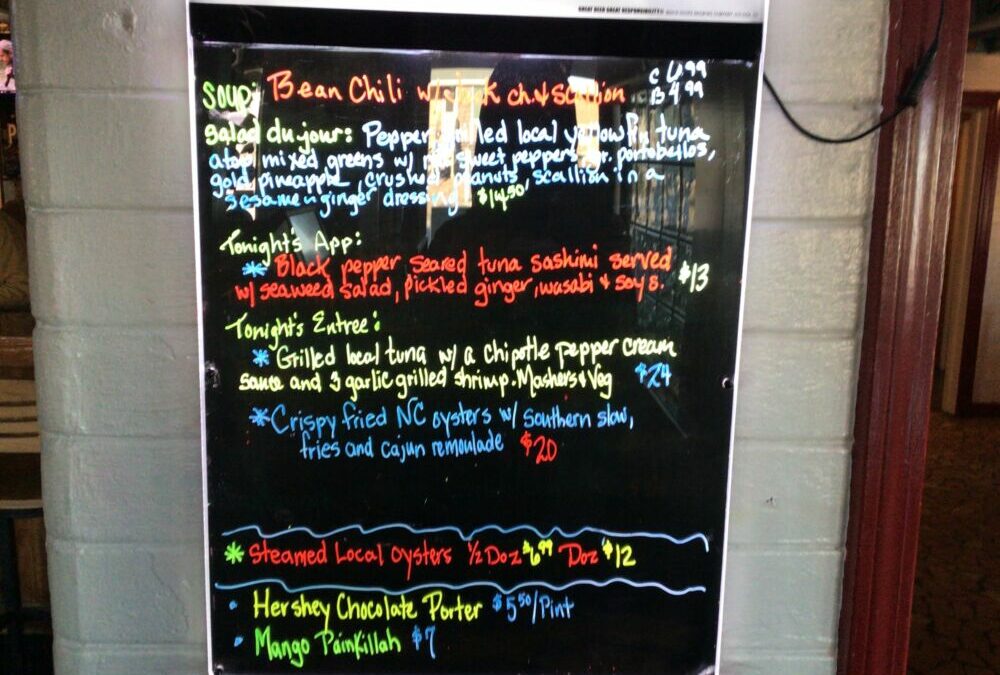 GREAT BEER GREAT RESPONSIBILITY
Soup: Bean Chili w/ ch. & Scallion
C 6.99
B 4.99
Salad du jour: Pepper grilled local yellowfin tuna
atop mixed greens w/ sweet peppers, gr. portobellos,
gold pineapple, crushed peanuts, scallion in a
sesame-ginger dressing. $14.50
Tonight's App:
* Black pepper seared tuna sashimi served
w/ seaweed salad, pickled ginger, wasabi & soy s. $13
Tonight's Entree:
* Grilled local tuna w/ a chipotle pepper cream
sauce and 3 garlic grilled shrimp. Mashers & Veg $24
* Crispy fried NC oysters w/ southern slaw,
fries and cajun remoulade $20
* Steamed Local oysters ½ Doz $6.99 Doz $12
• Hershey Chocolate Porter $5.50/Pint
• Mango Painkillah $7